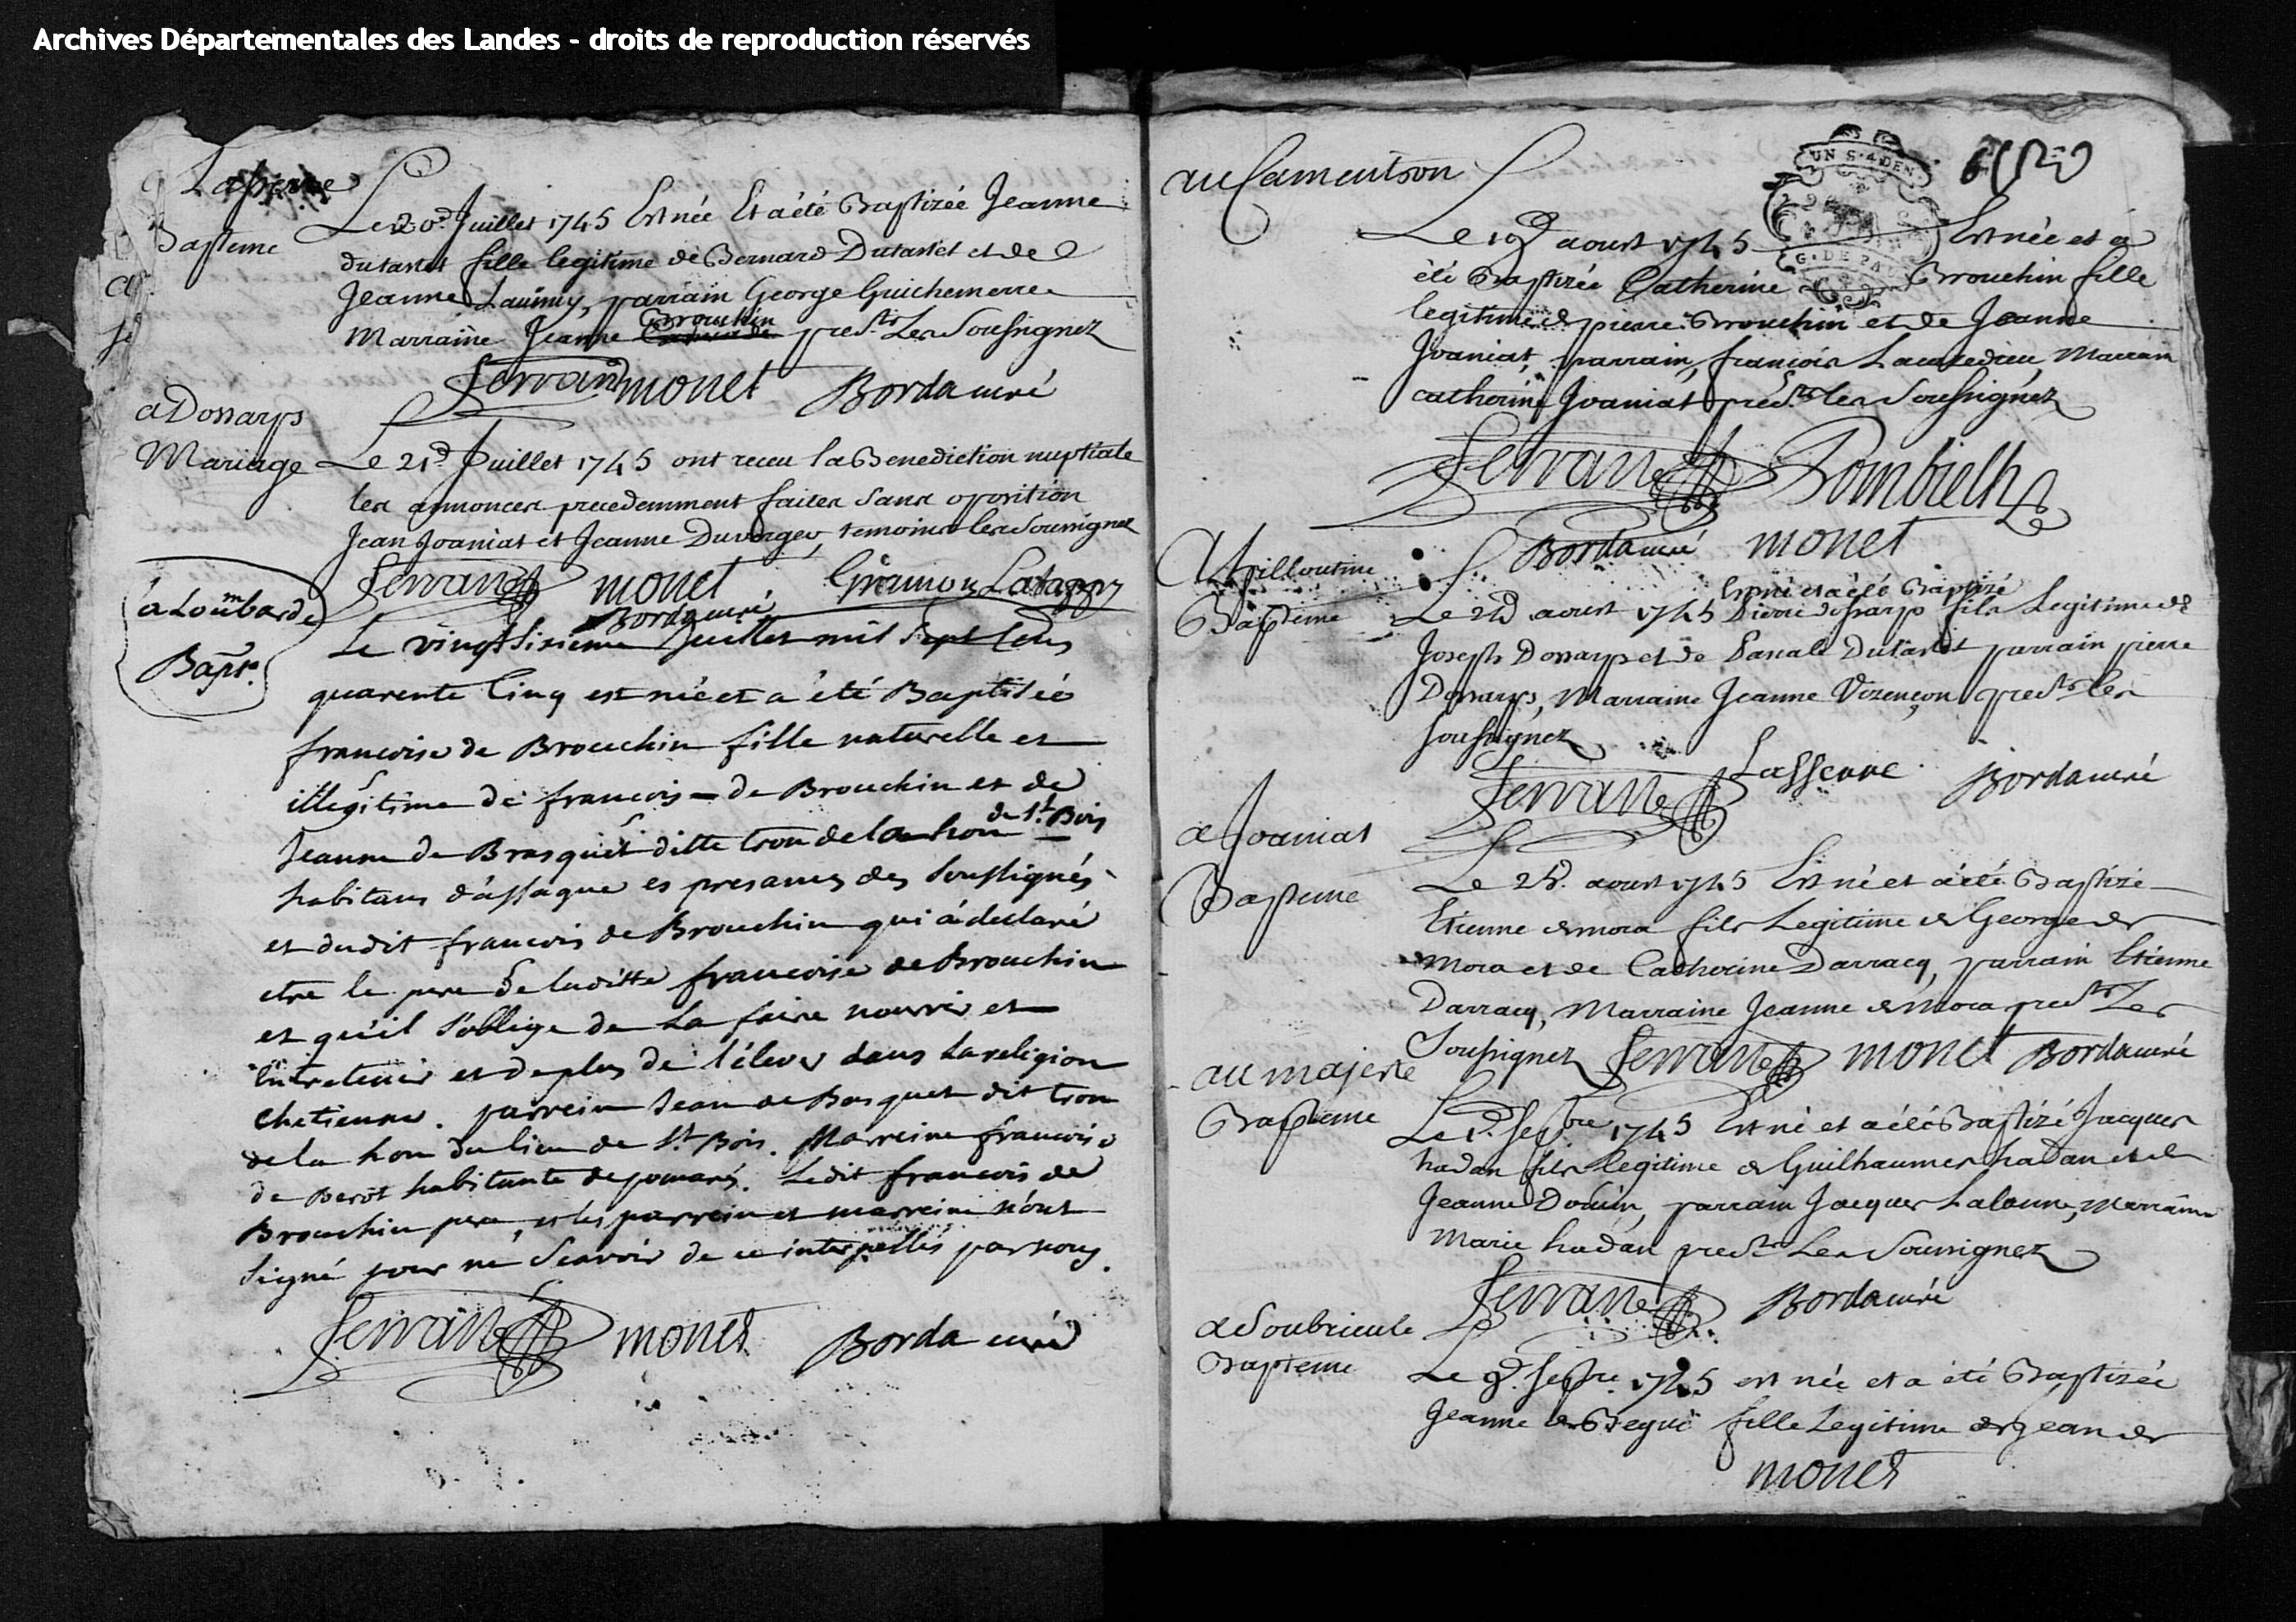 Archives Départementales des Landes - droits de reproduction réservés
Lasserre
Bapteme
Le 20.d Juillet 1745 Est née Et a été Baptizée Jeanne
dutastet fille legitime de Bernard Dutastet et de
Jeanne parrain George Guichemerre
Marraine Jeanne Brouchin pres.ts Les Soussignez
Ferrand monet Borda curé
a Dossarps
Mariage
Le 21.d Juillet 1745 ont receu la Benediction nuptiale
les annonces precedemment faites sans oposition
Jean Joaniat et Jeanne Duverger, temoins les soussignez
Ferrand monet Gramon Latappy
Borda curé
a Loumbarde
Bapt.
Le vingt sixieme Juillet mil sept Cens
quarente Cinq est née et a été Baptisée
francoise de Brouchin fille naturelle et
illegitime de francois de Brouchin et de
Jeanne de Brasquet ditte tron de la hon de St. Bois
habitans d'assaque es presances des soussignés
et dudit francois de Brouchin qui a declaré
etre le pere de laditte francoise de Brouchin
et qu'il s'oblige de La faire nourrir et
entretenir et deplus de l'élever dans la religion
chetienne. parrein Jean de Basquet dit tron
de la hon du lieu de St. Bois. Marreine francoise
de Berot habitante de pomarés. Ledit francois de
Brouchin pere, et les parrein et marreine n'ont
signé pour ne scavoir de ce interpellés par nous.
Ferrand monet Borda curé
au Camentron
UN S. 4 DEN.
G. DE PAU
Le aoust 1745 Est née et a
été Baptizée Catherine Brouchin fille
legitime de pierre Brouchin et de Jeanne
Joaniat, parrain, françois Lacuredieu, Marrain
catherine Joaniat pres.ts les Soussignez
Ferrand Pombielh
Borda curé monet
a hilloutine
Bapteme
Est né et a été Baptizé
Le aoust 1745 Pierre dossarps fils Legitime de
Joseph Dossarps et de Dutastet parrain pierre
Dossarps, Marraine Jeanne Vizençon pres.ts les
soussignez
Ferrand Lasserre Borda curé
a Joaniat
Bapteme
Le aoust 1745 Est né et a été Baptizé
Etienne demora fils Legitime de George de
Mora et de Catherine Darracq, parrain Etienne
Darracq, Marraine Jeanne demora pres.ts Les
Soussignez Ferrand monet Borda curé
au majeste
Bapteme
Le 1.er sepbre 1745 Est né et a été Baptizé Jacques
hadan fils legitime de Guilhaumes hadan et de
Jeanne Doduin, parrain Jacques Lalanne, Marraine
Marie hadan pres.ts Les Soussignez
Ferrand Borda curé
a Soubrieule
Bapteme
Le sepbre 1745 est née et a été Baptizée
Jeanne de Begué fille Legitime de Jean de
monet